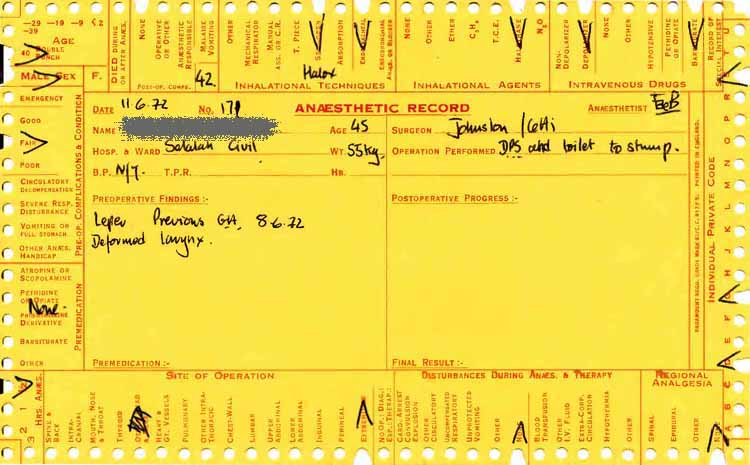 -29 -19 -9 <2
-39
AGE
40 DOUBLE PUNCH
MALE SEX F.
DIED DURING OR AFTER ANÆS.
NONE
OPERATIVE OR OTHER
ANÆSTHETIC RESPONSIBLE
MALAISE VOMITING
OTHER
POST-OP. COMPS.
42.
MECHANICAL RESPIRATOR
MANUAL ASS. OR C.R.
T. PIECE
ABSORPTION
Halox
INHALATIONAL TECHNIQUES
NONE
OTHER
ETHER
N₂O
INHALATIONAL AGENTS
NON-DEPOLARIZER
DEPOLARIZER
NONE
OTHER
HYPOTENSIVE
PETHIDINE OR OPIATE
BARBITURATE
INTRAVENOUS DRUGS
RECORD OF SPECIAL INTEREST
DATE 11.6.72 No. 171 ANÆSTHETIC RECORD ANÆSTHETIST
NAME AGE 45 SURGEON Johnston /
HOSP. & WARD Salalah Civil WT. 55kg. OPERATION PERFORMED DPS and toilet to stump.
B.P. N/T. T.P.R. HB.
PREOPERATIVE FINDINGS :- POSTOPERATIVE PROGRESS :-
Leper Previous GA. 8.6.72
Deformed larynx.
PREMEDICATION :- FINAL RESULT :-
PRE-OP. COMPLICATIONS & CONDITION
EMERGENCY
GOOD
FAIR
POOR
CIRCULATORY DECOMPENSATION
SEVERE RESP. DISTURBANCE
VOMITING OR FULL STOMACH
OTHER ANÆS. HANDICAP
PREMEDICATION
ATROPINE OR SCOPOLAMINE
PETHIDINE OR OPIATE
None.
DERIVATIVE
BARBITURATE
OTHER
HRS. ANÆS.
3 2 1
SITE OF OPERATION
SPINE & BACK
INTRA-CRANIAL
MOUTH, NOSE & THROAT
THYROID
HEART & GT. VESSELS
PULMONARY
OTHER INTRA-THORACIC
CHEST-WALL
LUMBAR
UPPER ABDOMINAL
LOWER ABDOMINAL
INGUINAL
PERINEAL
DISTURBANCES DURING ANÆS. & THERAPY
CARD. ARREST
CONVULSION
EXPLOSION
OTHER CIRCULATORY
UNCOMPENSATED RESPIRATORY
UNPROTECTED VOMITING
OTHER
BLOOD TRANSFUSION
OTHER I.V. FLUID
EXTRA-CORP. CIRCULATION
HYPOTHERMIA
OTHER
REGIONAL ANALGESIA
SPINAL
EPIDURAL
OTHER
INDIVIDUAL PRIVATE CODE
PRINTED IN ENGLAND.